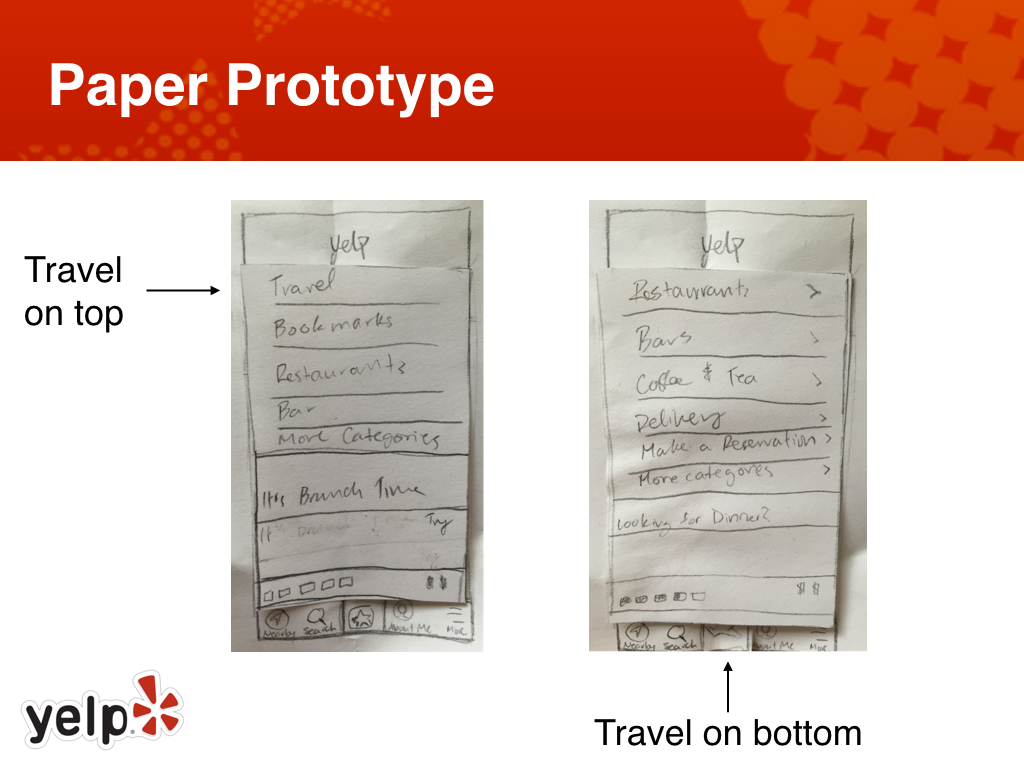 Paper Prototype
Travel
on top
yelp
Travel
Bookmarks
Restaurants
Bar
More Categories
It's Brunch Time
It's
Try
$$
Nearby Search About Me More
yelp
Restaurants >
Bars >
Coffee & Tea >
Delivery >
Make a Reservation >
More categores >
Looking for Dinner?
$$
Nearby Search About Me More
Travel on bottom
yelp